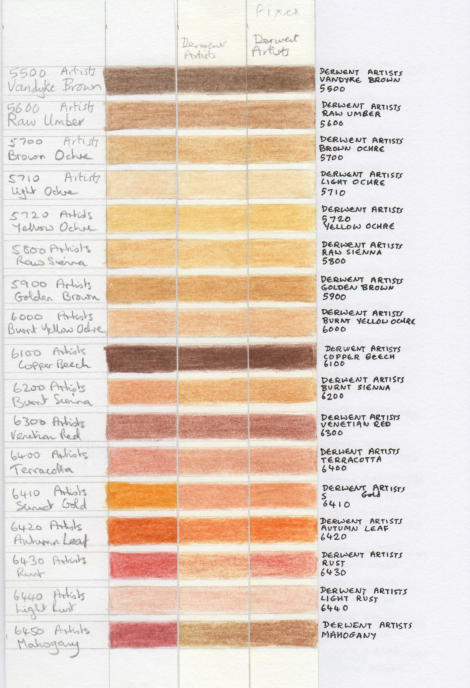 Fixed
Derwent
Artists
Derwent
Artists
5500 Artists
Vandyke Brown
DERWENT ARTISTS
VANDYKE BROWN
5500
5600 Artists
Raw Umber
DERWENT ARTISTS
RAW UMBER
5600
5700 Artists
Brown Ochre
DERWENT ARTISTS
BROWN OCHRE
5700
5710 Artists
Light Ochre
DERWENT ARTISTS
LIGHT OCHRE
5710
5720 Artists
Yellow Ochre
DERWENT ARTISTS
5720
YELLOW OCHRE
5800 Artists
Raw Sienna
DERWENT ARTISTS
RAW SIENNA
5800
5900 Artists
Golden Brown
DERWENT ARTISTS
GOLDEN BROWN
5900
6000 Artists
Burnt Yellow Ochre
DERWENT ARTISTS
BURNT YELLOW OCHRE
6000
6100 Artists
Copper Beech
DERWENT ARTISTS
COPPER BEECH
6100
6200 Artists
Burnt Sienna
DERWENT ARTISTS
BURNT SIENNA
6200
6300 Artists
Venetian Red
DERWENT ARTISTS
VENETIAN RED
6300
6400 Artists
Terracotta
DERWENT ARTISTS
TERRACOTTA
6400
6410 Artists
Sunset Gold
DERWENT ARTISTS
S Gold
6410
6420 Artists
Autumn Leaf
DERWENT ARTISTS
AUTUMN LEAF
6420
6430 Artists
Rust
DERWENT ARTISTS
RUST
6430
6440 Artists
Light Rust
DERWENT ARTISTS
LIGHT RUST
6440
6450 Artists
Mahogany
DERWENT ARTISTS
MAHOGANY